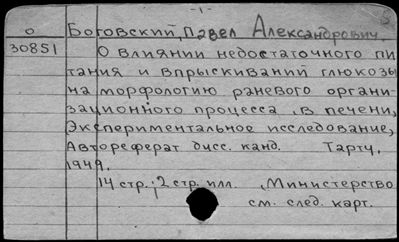 -1-
о Боговский, Павел Александрович.
30851 О влиянии недостаточного пи
тания и впрыскиваний глюкозы
на морфологию раневого органи-
зационного процесса в печени,
Экспериментальное исследование,
Автореферат дисс. канд. Тарту,
1949.
14 стр.; 2 стр. илл. Министерство
см. след. карт.